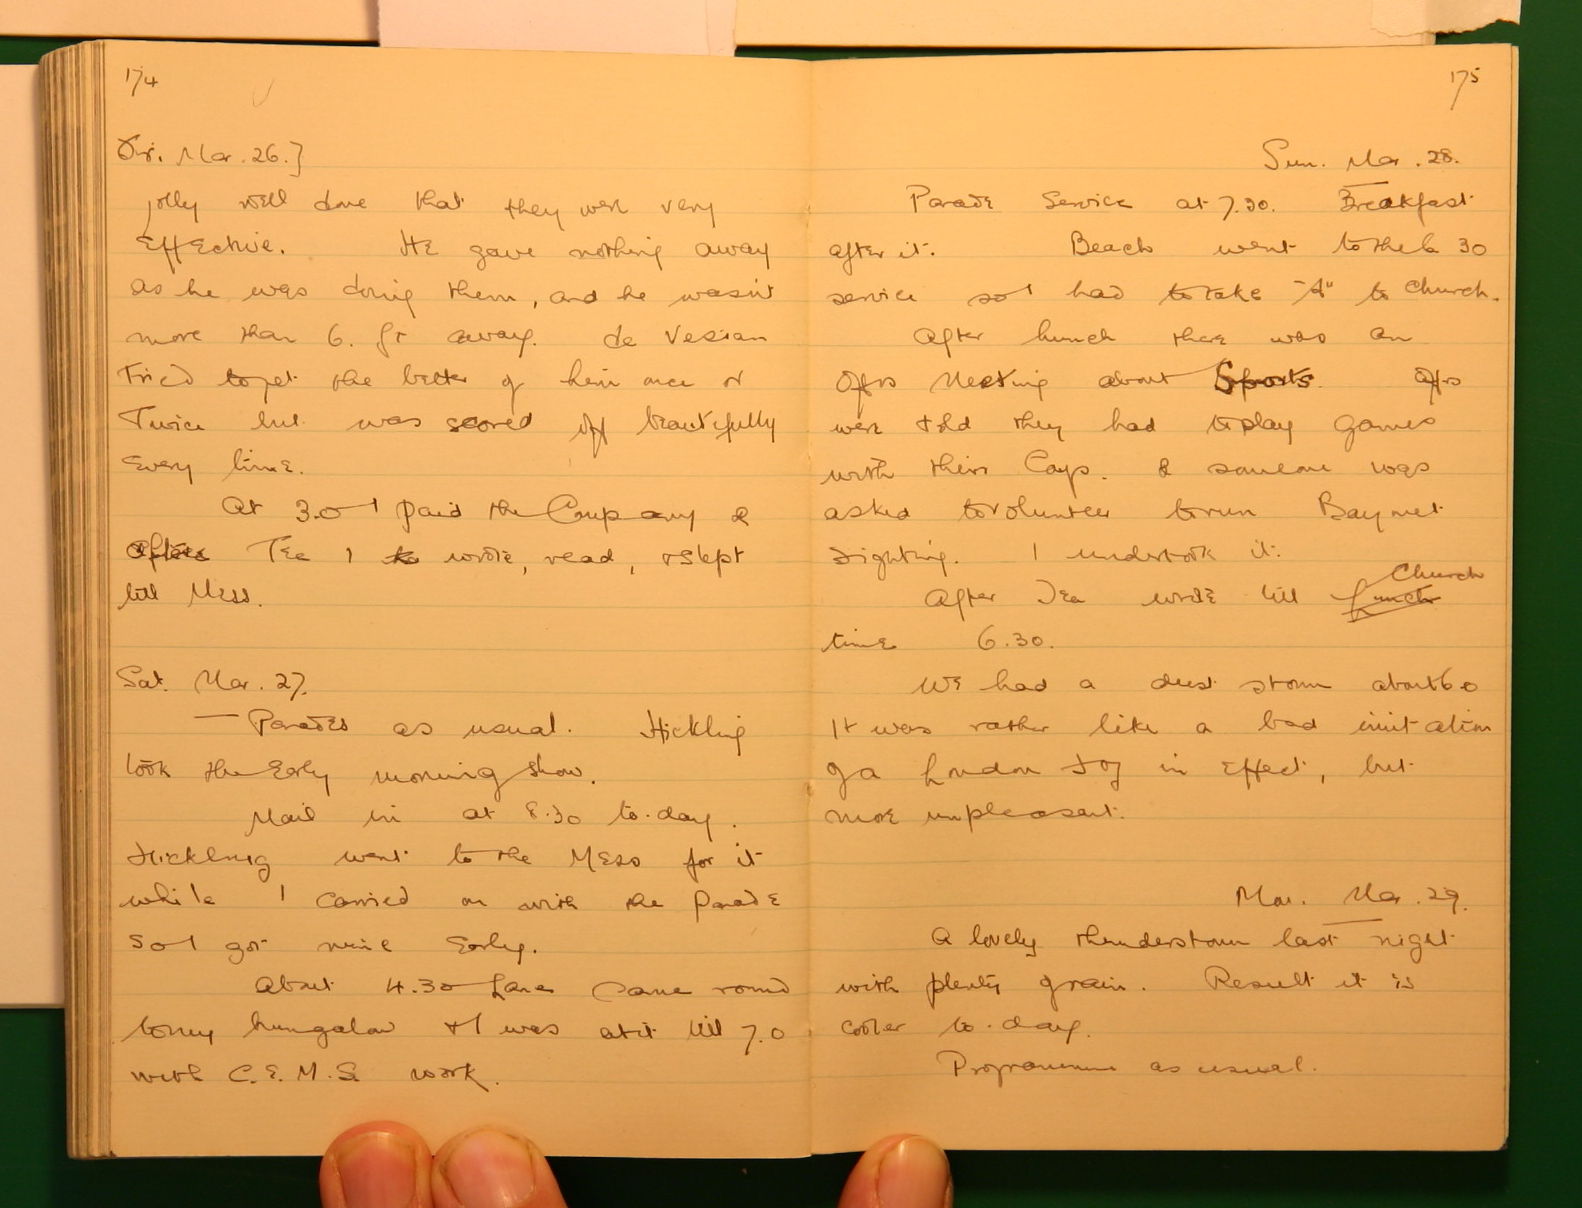 174
Fri. Mar. 26.]
jolly well done that they were very
effective. He gave nothing away
as he was doing them, and he wasn't
more than 6. ft away. de Vesian
tried to get the better of him once or
twice but was scored off beautifully
every time.
At 3.0 I paid the Company &
after Tea I wrote, read, & slept
till Mess.
Sat. Mar. 27.
— Parades as usual. Hickling
took the Early morning show.
Mail in at 8.30 to-day.
Hickling went to the Mess for it
while I carried on with the parade
so I got mine Early.
About 4.30 Lane came round
to my bungalow & I was at it till 7.0
with C.E.M.S. work.
175
Sun. Mar. 28.
Parade Service at 7.30. Breakfast
after it. Beach went to the 6 30
service so I had to take "A" to Church.
After lunch there was an
Offrs Meeting about Sports. Offrs
were told they had to play games
with their Coys. & someone was
asked to volunteer to run Baynet
Fighting. I undertook it.
After Tea wrote till Lunch Church
time 6.30.
We had a dust storm about 6 0
It was rather like a bad imitation
of a London Fog in Effect, but
more unpleasant.
Mon. Mar. 29.
A lovely thunderstorm last night
with plenty of rain. Result it is
cooler to-day.
Programme as usual.